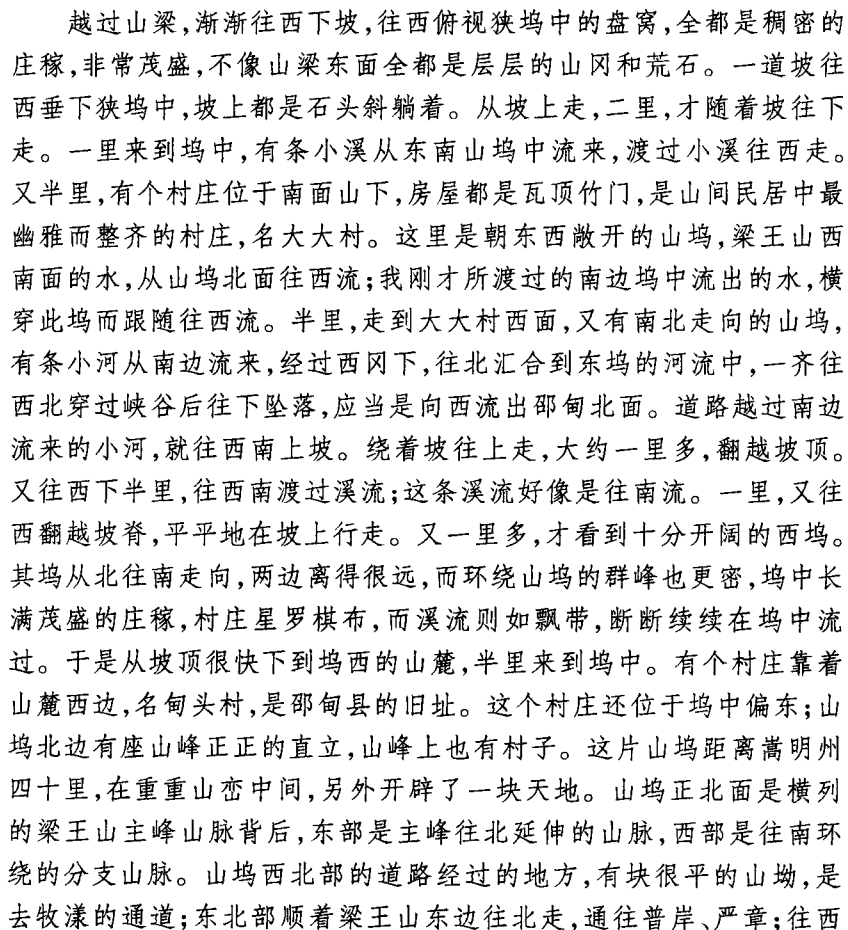 越过山梁,渐渐往西下坡,往西俯视狭坞中的盘窝,全都是稠密的
庄稼,非常茂盛,不像山梁东面全都是层层的山冈和荒石。一道坡往
西垂下狭坞中,坡上都是石头斜躺着。从坡上走,二里,才随着坡往下
走。一里来到坞中,有条小溪从东南山坞中流来,渡过小溪往西走。
又半里,有个村庄位于南面山下,房屋都是瓦顶竹门,是山间民居中最
幽雅而整齐的村庄,名大大村。这里是朝东西敞开的山坞,梁王山西
南面的水,从山坞北面往西流;我刚才所渡过的南边坞中流出的水,横
穿此坞而跟随往西流。半里,走到大大村西面,又有南北走向的山坞,
有条小河从南边流来,经过西冈下,往北汇合到东坞的河流中,一齐往
西北穿过峡谷后往下坠落,应当是向西流出邵甸北面。道路越过南边
流来的小河,就往西南上坡。绕着坡往上走,大约一里多,翻越坡顶。
又往西下半里,往西南渡过溪流;这条溪流好像是往南流。一里,又往
西翻越坡脊,平平地在坡上行走。又一里多,才看到十分开阔的西坞。
其坞从北往南走向,两边离得很远,而环绕山坞的群峰也更密,坞中长
满茂盛的庄稼,村庄星罗棋布,而溪流则如飘带,断断续续在坞中流
过。于是从坡顶很快下到坞西的山麓,半里来到坞中。有个村庄靠着
山麓西边,名甸头村,是邵甸县的旧址。这个村庄还位于坞中偏东;山
坞北边有座山峰正正的直立,山峰上也有村子。这片山坞距离嵩明州
四十里,在重重山峦中间,另外开辟了一块天地。山坞正北面是横列
的梁王山主峰山脉背后,东部是主峰往北延伸的山脉,西部是往南环
绕的分支山脉。山坞西北部的道路经过的地方,有块很平的山坳,是
去牧漾的通道;东北部顺着梁王山东边往北走,通往普岸、严章;往西